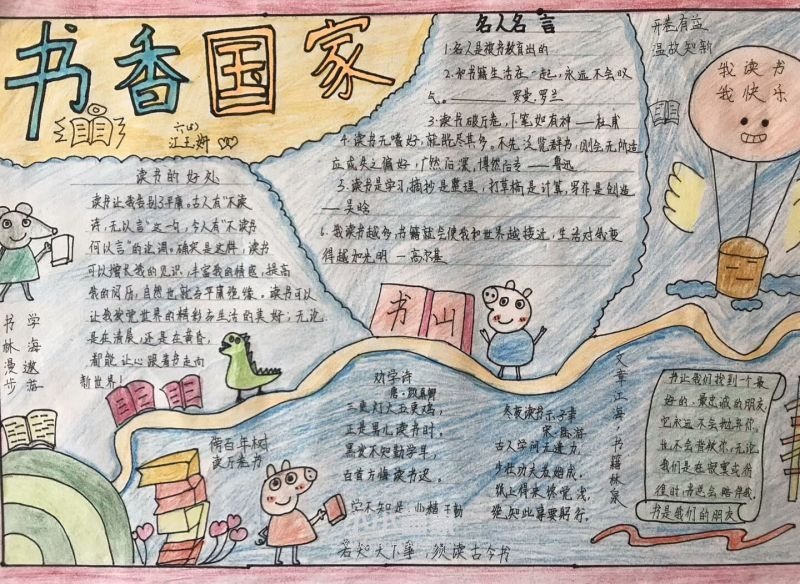 书香国家
六(4)
读书的好处
读书让我告别了平庸。古人有"不读
诗，无以言"这一句，今人有"不读书
何以言"的论调。确实是这样，读书
可以增长我的见识，丰富我的情感，提高
我的阅历，自然也就与平庸绝缘。读书可以
让我感觉世界的精彩与生活的美好；无论
是在清晨，还是在黄昏，
都能让心跟着书走向
新世界！
名人名言
1.名人是被书教育出的
2.和书籍生活在一起，永远不会叹
气。———罗曼.罗兰
3.读书破万卷，下笔如有神——杜甫
4.读书无嗜好，就能尽其多。不先泛览群书，则会无所适
应或失之偏好，广然后深，博然后专——鲁迅
5.读书是学习，摘抄是整理，打草稿是计算，写作是创造
——吴晗
6.我读书越多，书籍就会使我和世界越接近，生活对我变
得越加光明 —高尔基
开卷有益
温故知新
我读书
我快乐
书林漫步
学海遨游
书山
劝学诗
唐·颜真卿
三更灯火五更鸡，
正是男儿读书时。
黑发不知勤学早，
白首方悔读书迟。
冬夜读书示子聿
宋·陆游
古人学问无遗力，
少壮功夫老始成。
纸上得来终觉浅，
绝知此事要躬行。
文章江海，书籍林泉
倚百年树
读万卷书
若知天下事，须读古今书
书让我们找到一个最
好的、最忠诚的朋友
它永远不会抛弃你，
也不会背叛你，无论
书是我们的朋友